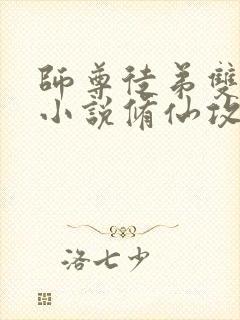 師尊徒弟雙
小說脩仙攻
洛七少